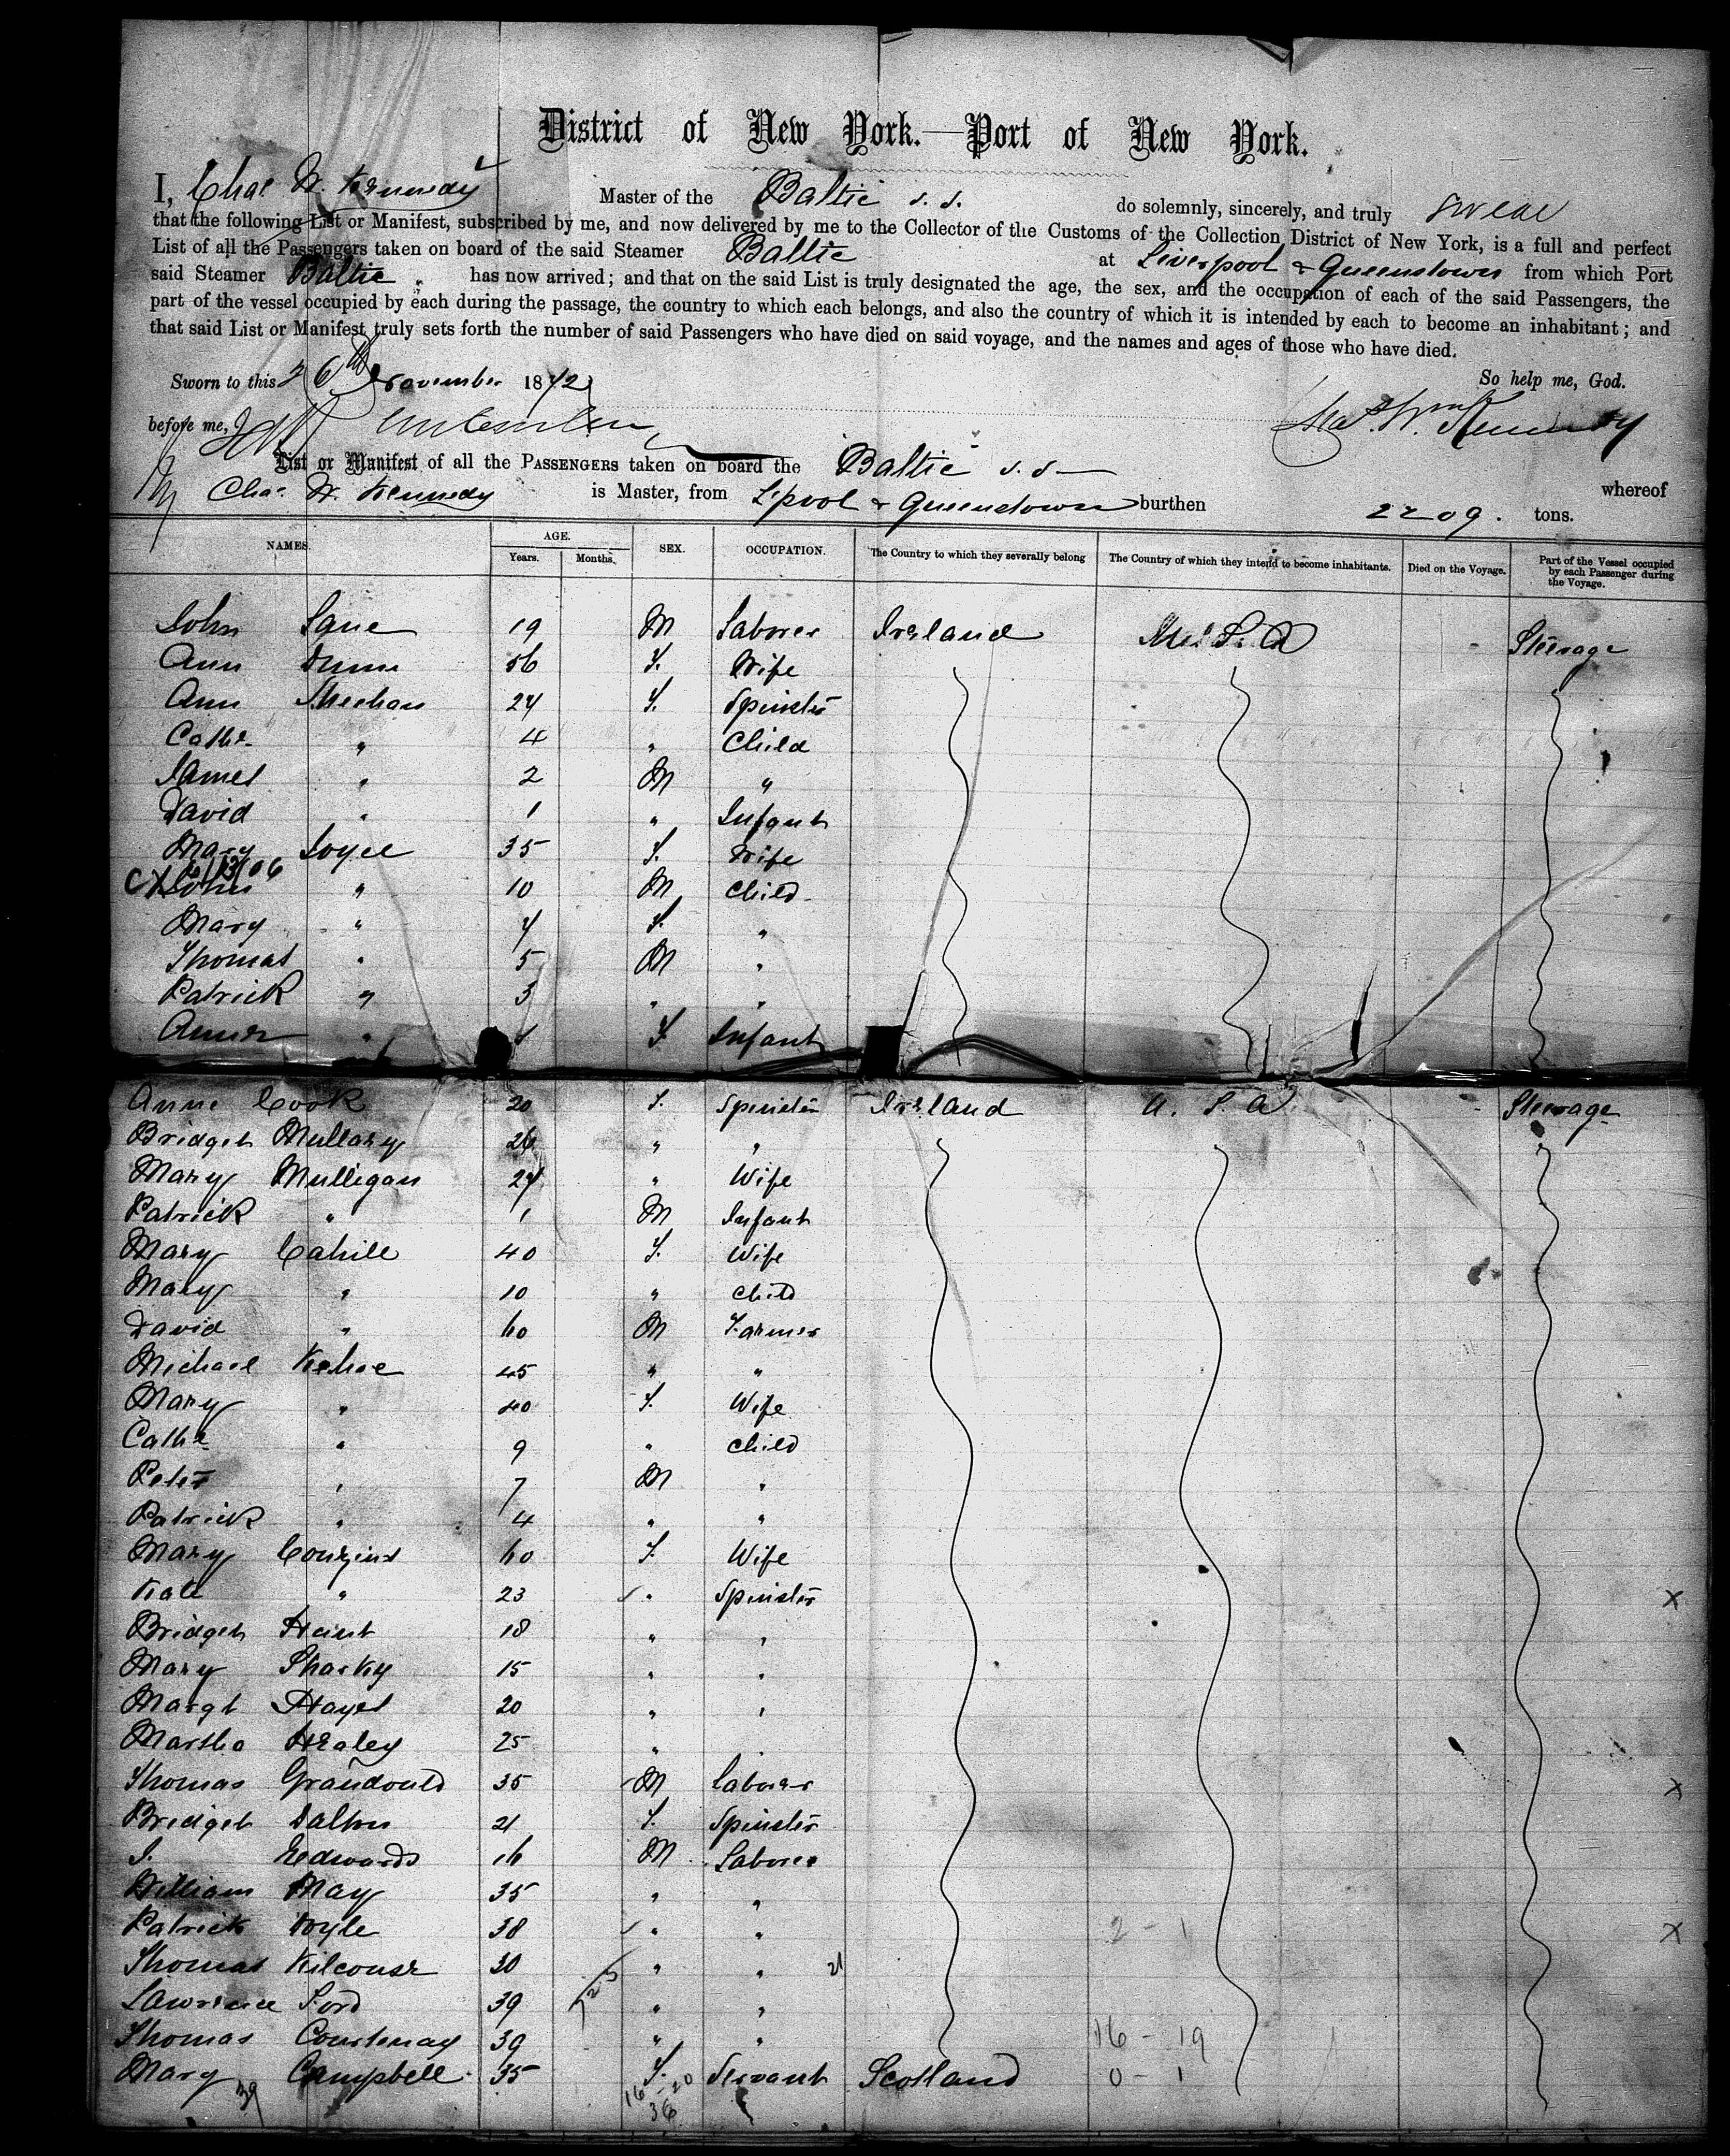 District of New York.—Port of New York.
I, Chas. W. Kennedy Master of the Baltic s. s. do solemnly, sincerely, and truly swear
that the following List or Manifest, subscribed by me, and now delivered by me to the Collector of the Customs of the Collection District of New York, is a full and perfect
List of all the Passengers taken on board of the said Steamer Baltic at Liverpool & Queenstown from which Port
said Steamer Baltic „ has now arrived; and that on the said List is truly designated the age, the sex, and the occupation of each of the said Passengers, the
part of the vessel occupied by each during the passage, the country to which each belongs, and also the country of which it is intended by each to become an inhabitant; and
that said List or Manifest truly sets forth the number of said Passengers who have died on said voyage, and the names and ages of those who have died.
Sworn to this 26th November 1872 So help me, God.
before me, Chas. W. Kennedy
List or Manifest of all the PASSENGERS taken on board the Baltic s. s. whereof
Chas. W. Kennedy is Master, from L'pool & Queenstown burthen 2209. tons.
NAMES. AGE. SEX. OCCUPATION. The Country to which they severally belong The Country of which they intend to become inhabitants. Died on the Voyage. Part of the Vessel occupied by each Passenger during the Voyage.
Years. Months.
John Lane 19 M Laborer Ireland U. S. A Steerage
Ann Dunn 56 F. Wife
Ann Sheehan 24 F. Spinster
Cathe. „ 4 „ Child
James „ 2 M „
David „ 1 „ Infant
Mary Joyce 35 F. Wife
John „ 10 M Child
Mary „ 7 F. „
Thomas „ 5 M „
Patrick „ 3 „ „
„ F Infant
Anne Cook 20 F. Spinster Ireland U. S. A Steerage
Bridget Mullary 26 „ „
Mary Mulligan 27 „ Wife
Patrick „ 1 M Infant
Mary Cahill 40 F. Wife
Mary „ 10 „ Child
David „ 60 M Farmer
Michael Kehoe 45 „ „
Mary „ 40 F. Wife
Cathe „ 9 „ Child
Peter „ 7 M „
Patrick „ 4 „ „
Mary Couzins 60 F. Wife
Kate „ 23 „ Spinster X
Bridget 18 „ „
Mary Sharky 15 „ „
Margt Hayes 20 „ „
Martha Healey 25 „ „
Thomas 35 M Laborer X
Bridget Dalton 21 F. Spinster
J. Edwards 16 M Laborer
William May 35 „ „
Patrick Doyle 38 „ „ 2 - 1 X
Thomas 30 „ „ 21
Lawrence Ford 39 „ „
Thomas Courtenay 39 „ „ 16 - 19
Mary Campbell 35 F. Servant Scotland 0 - 1
39 16 - 20
36